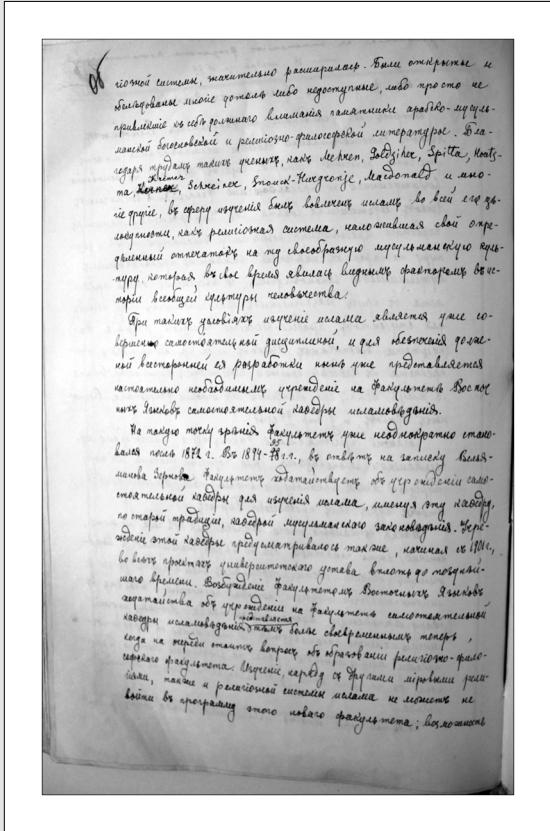 об
гіозной системы, значительно расширилась. Были открыты и
обслѣдованы многіе дотолѣ либо недоступные, либо просто не
привлекшіе къ себѣ должнаго вниманія памятники арабско-мусуль-
манской богословской и религіозно-философской литературы. Бла-
годаря трудамъ такихъ ученыхъ, какъ Mehren, Goldziher, Spitta, Houts-
ma, Kremer, Schreiner, Snouck-Hurgronje, Macdonald и мно-
гіе другіе, въ сферу изученія былъ вовлеченъ исламъ во всей его цѣ-
локупности, какъ религіозная система, наложившая свой опре-
дѣленный отпечатокъ на ту своеобразную мусульманскую куль-
туру, которая въ свое время явилась виднымъ факторомъ въ ис-
торіи всеобщей культуры человѣчества.
При такихъ условіяхъ изученіе ислама является уже со-
вершенно самостоятельной дисциплиной, и для обезпеченія долж-
ной всесторонней ея разработки нынѣ уже представляется
настоятельно необходимымъ учрежденіе на Факультетѣ Восточ
ныхъ Языковъ самостоятельной кафедры исламовѣдѣнія.
На такую точку зрѣнія Факультетъ уже неоднократно стано-
вился послѣ 1872 г. Въ 1894-95 г.г., въ отвѣтъ на записку Велья-
минова Зернова Факультетъ ходатайствуетъ объ учрежденіи само-
стоятельной кафедры для изученія ислама, именуя эту кафедру,
по старой традиціи, кафедрой мусульманскаго законовѣдѣнія. Учре-
жденіе этой кафедры предусматривалось также, начиная съ 1901 г.,
во всѣхъ проектахъ университетскаго устава вплоть до позднѣй-
шаго времени. Возбужденіе Факультетомъ Восточныхъ Языковъ
ходатайства объ учрежденіи на Факультетѣ самостоятельной
кафедры исламовѣдѣнія представляется тѣмъ болѣе своевременнымъ теперь,
когда на очереди стоитъ вопросъ объ образованіи религіозно-фило-
софскаго факультета. Изученіе, наряду съ другими міровыми рели-
гіями, также и религіозной системы ислама не можетъ не
войти въ программу этого новаго факультета; возможность